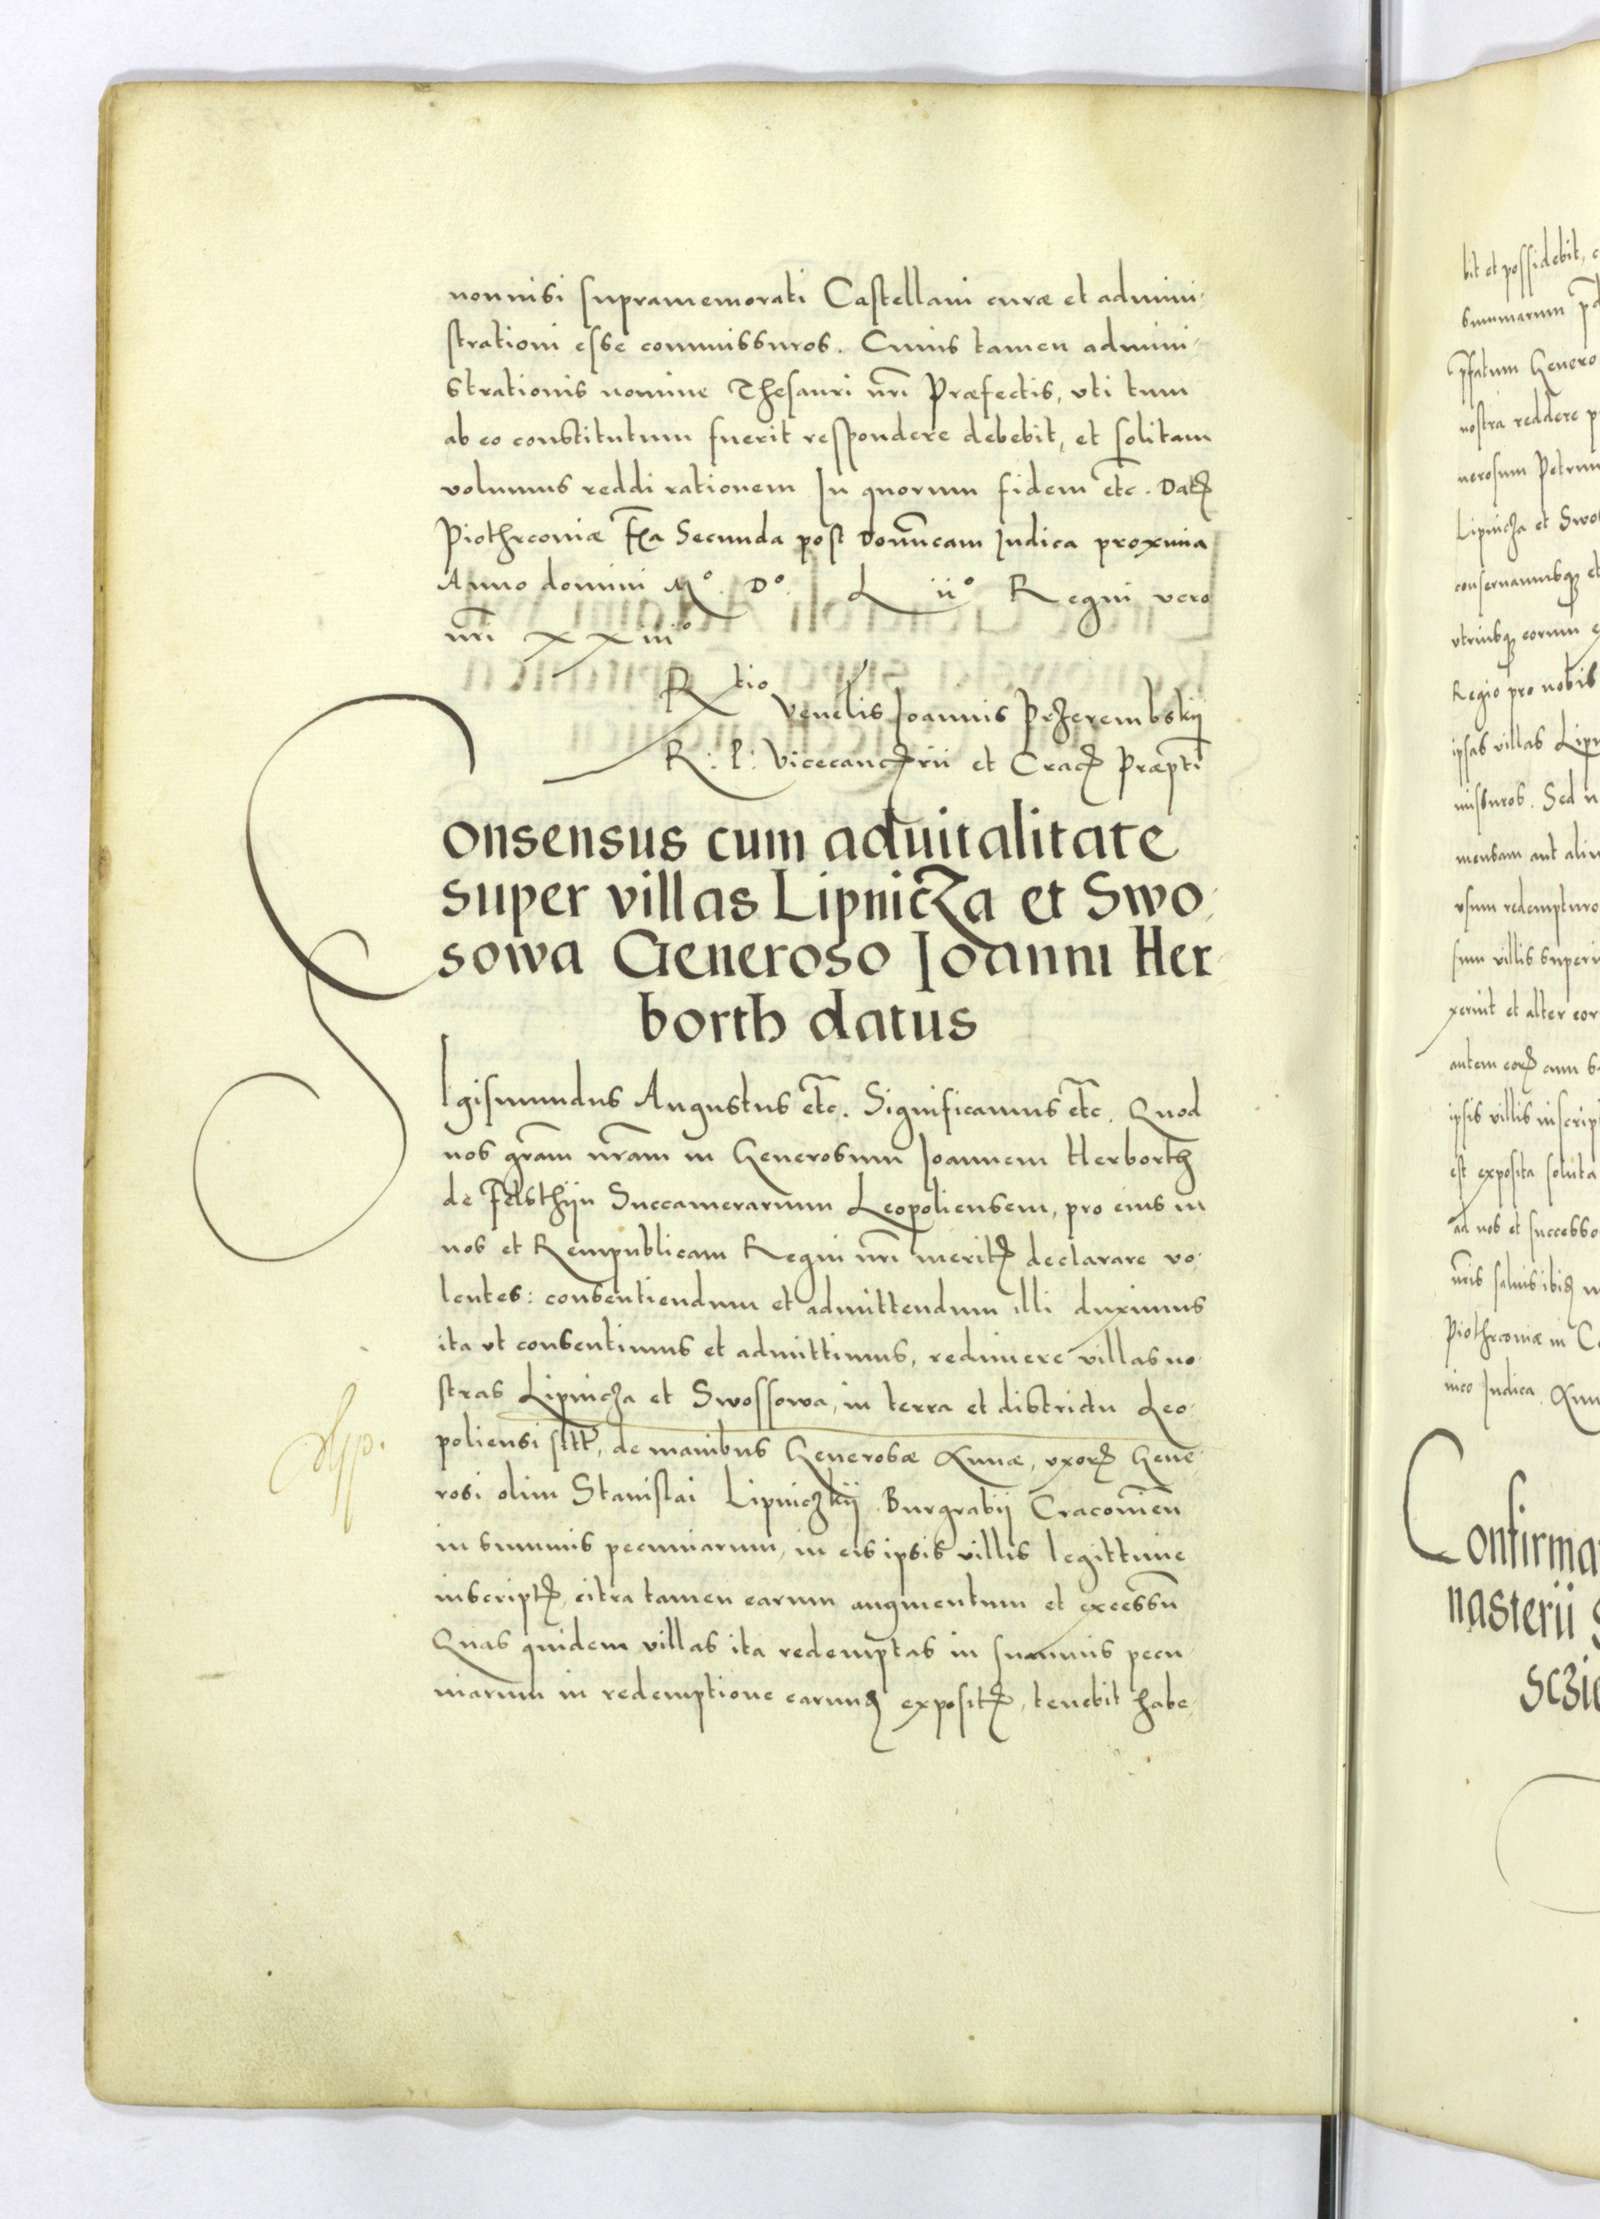 nonnisi supramemorati Castellani curæ et admini-
strationi esse commissuros. Cuius tamen admini-
strationis nomine Thesauri nri Præfectis, vti tum
ab eo constitutum fuerit respondere debebit, et solitam
volumus reddi rationem In quorum fidem etc. Dat
Piothrconiæ fra Secunda post Domncam Iudica proxima
Anno domini Mº. Dº. L iiº Regni vero
nri xxiiiº
Rtio Venelis Joannis Przerembskij
R. P. Vicecancrii et Crac Præpti
Consensus cum aduitalitate
super villas Lipnicza et Swo-
sowa Generoso Joanni Her-
borth datus
Sigismundus Augustus etc. Significamus etc. Quod
nos gram nram in Generosum Joannem Herborth
de Felsthijn Succamerarium Leopoliensem, pro eius in
nos et Rempublicam Regni nri merit declarare vo-
lentes: consentiendum et admittendum illi duximus
ita vt consentimus et admittimus, redimere villas no-
stras Lipnicza et Swossowa, in terra et districtu Leo-
poliensi sitt, de manibus Generosæ Annæ, vxor Gene-
rosi olim Stanislai Lipniczkij Burgrabij Cracovien
in summis pecuniarum, in eis ipsis villis legittime
inscript, citra tamen earum augmentum et excessu
Quas quidem villas ita redemptas in summis pecu-
niarum in redemptione earum exposit, tenebit habe-
bit et possidebit,
summarum
pfatum Genero
nostra reddere
nerosum Petrum
Lipnicza et Swo
conseruamusq et
vtriusq eorum
Regio pro nobis
ipsas villas Lipn
missuros. Sed n
mensam aut alin
vsum redempturo
sum villis superi
xerint et alter eor
autem eor cum
ipsis villis inscrip
est exposita soluta
ad nos et successo
nris saluis ibi
Piothrconiæ in
nico Iudica. Ann
Confirma
nasterii
sczi